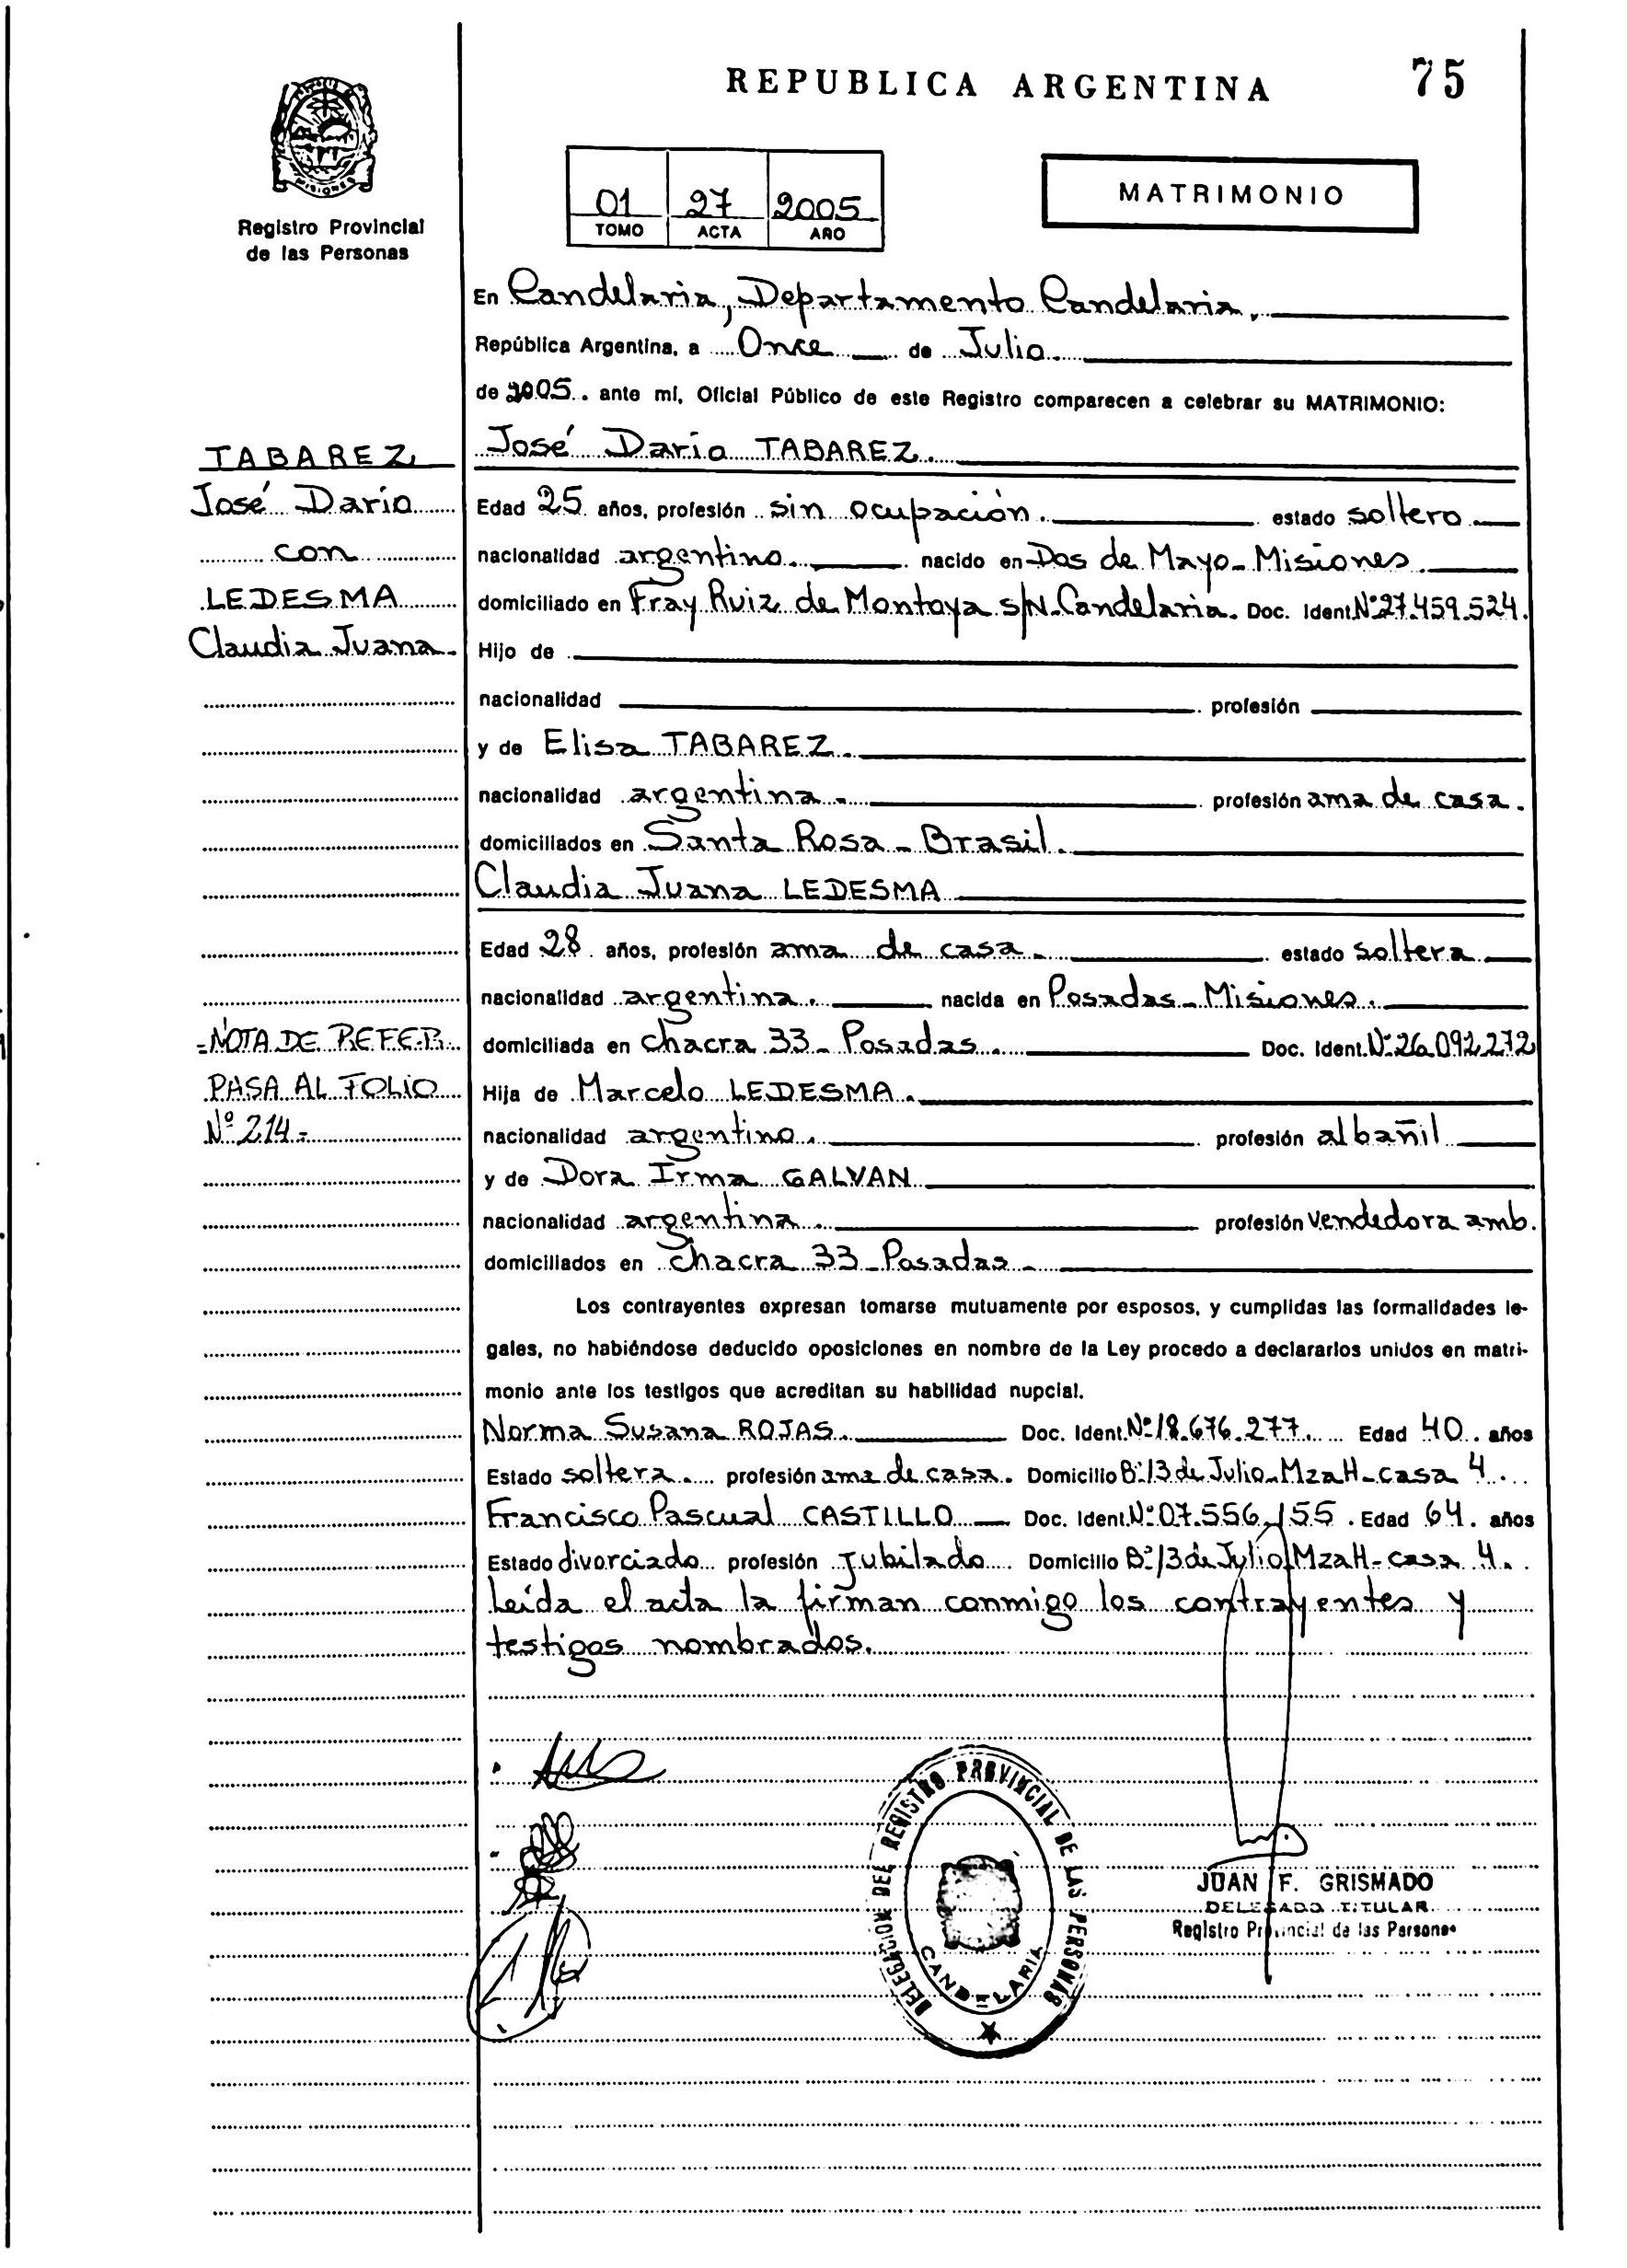 REPUBLICA ARGENTINA
75
MISIONES
Registro Provincial
de las Personas
01 27 2005
TOMO ACTA AÑO
MATRIMONIO
En Candelaria, Departamento Candelaria.
República Argentina, a Once de Julio
de 2005. ante mí, Oficial Público de este Registro comparecen a celebrar su MATRIMONIO:
José Darío TABAREZ.
Edad 25 años, profesión sin ocupación. estado soltero
nacionalidad argentino. nacido en Dos de Mayo - Misiones.
domiciliado en Fray Ruiz de Montoya s/N. Candelaria. Doc. Ident. Nº 27.459.524.
Hijo de
nacionalidad profesión
y de Elisa TABAREZ.
nacionalidad argentina - profesión ama de casa.
domiciliados en Santa Rosa - Brasil.
Claudia Juana LEDESMA
Edad 28 años, profesión ama de casa. estado soltera
nacionalidad argentina. nacida en Posadas - Misiones.
domiciliada en chacra 33 - Posadas. Doc. Ident. Nº 26.092.272
Hija de Marcelo LEDESMA.
nacionalidad argentino. profesión albañil
y de Dora Irma GALVAN
nacionalidad argentina. profesión Vendedora amb.
domiciliados en Chacra 33 - Posadas -
Los contrayentes expresan tomarse mutuamente por esposos, y cumplidas las formalidades le-
gales, no habiéndose deducido oposiciones en nombre de la Ley procedo a declararlos unidos en matri-
monio ante los testigos que acreditan su habilidad nupcial.
Norma Susana ROJAS. Doc. Ident. Nº 18.676.277. Edad 40. años
Estado soltera. profesión ama de casa. Domicilio Bº 13 de Julio - Mza H - casa 4.
Francisco Pascual CASTILLO Doc. Ident. Nº 07.556.155. Edad 64. años
Estado divorciado profesión Jubilado Domicilio Bº 13 de Julio Mza H - casa 4.
Leída el acta la firman conmigo los contrayentes y
testigos nombrados.
TABAREZ
José Darío
con
LEDESMA
Claudia Juana.
-NOTA DE REFER.
PASA AL FOLIO
Nº 214-
DELEGACION DEL REGISTRO PROVINCIAL DE LAS PERSONAS
CANDELARIA
JUAN F. GRISMADO
DELEGADO TITULAR
Registro Provincial de las Personas